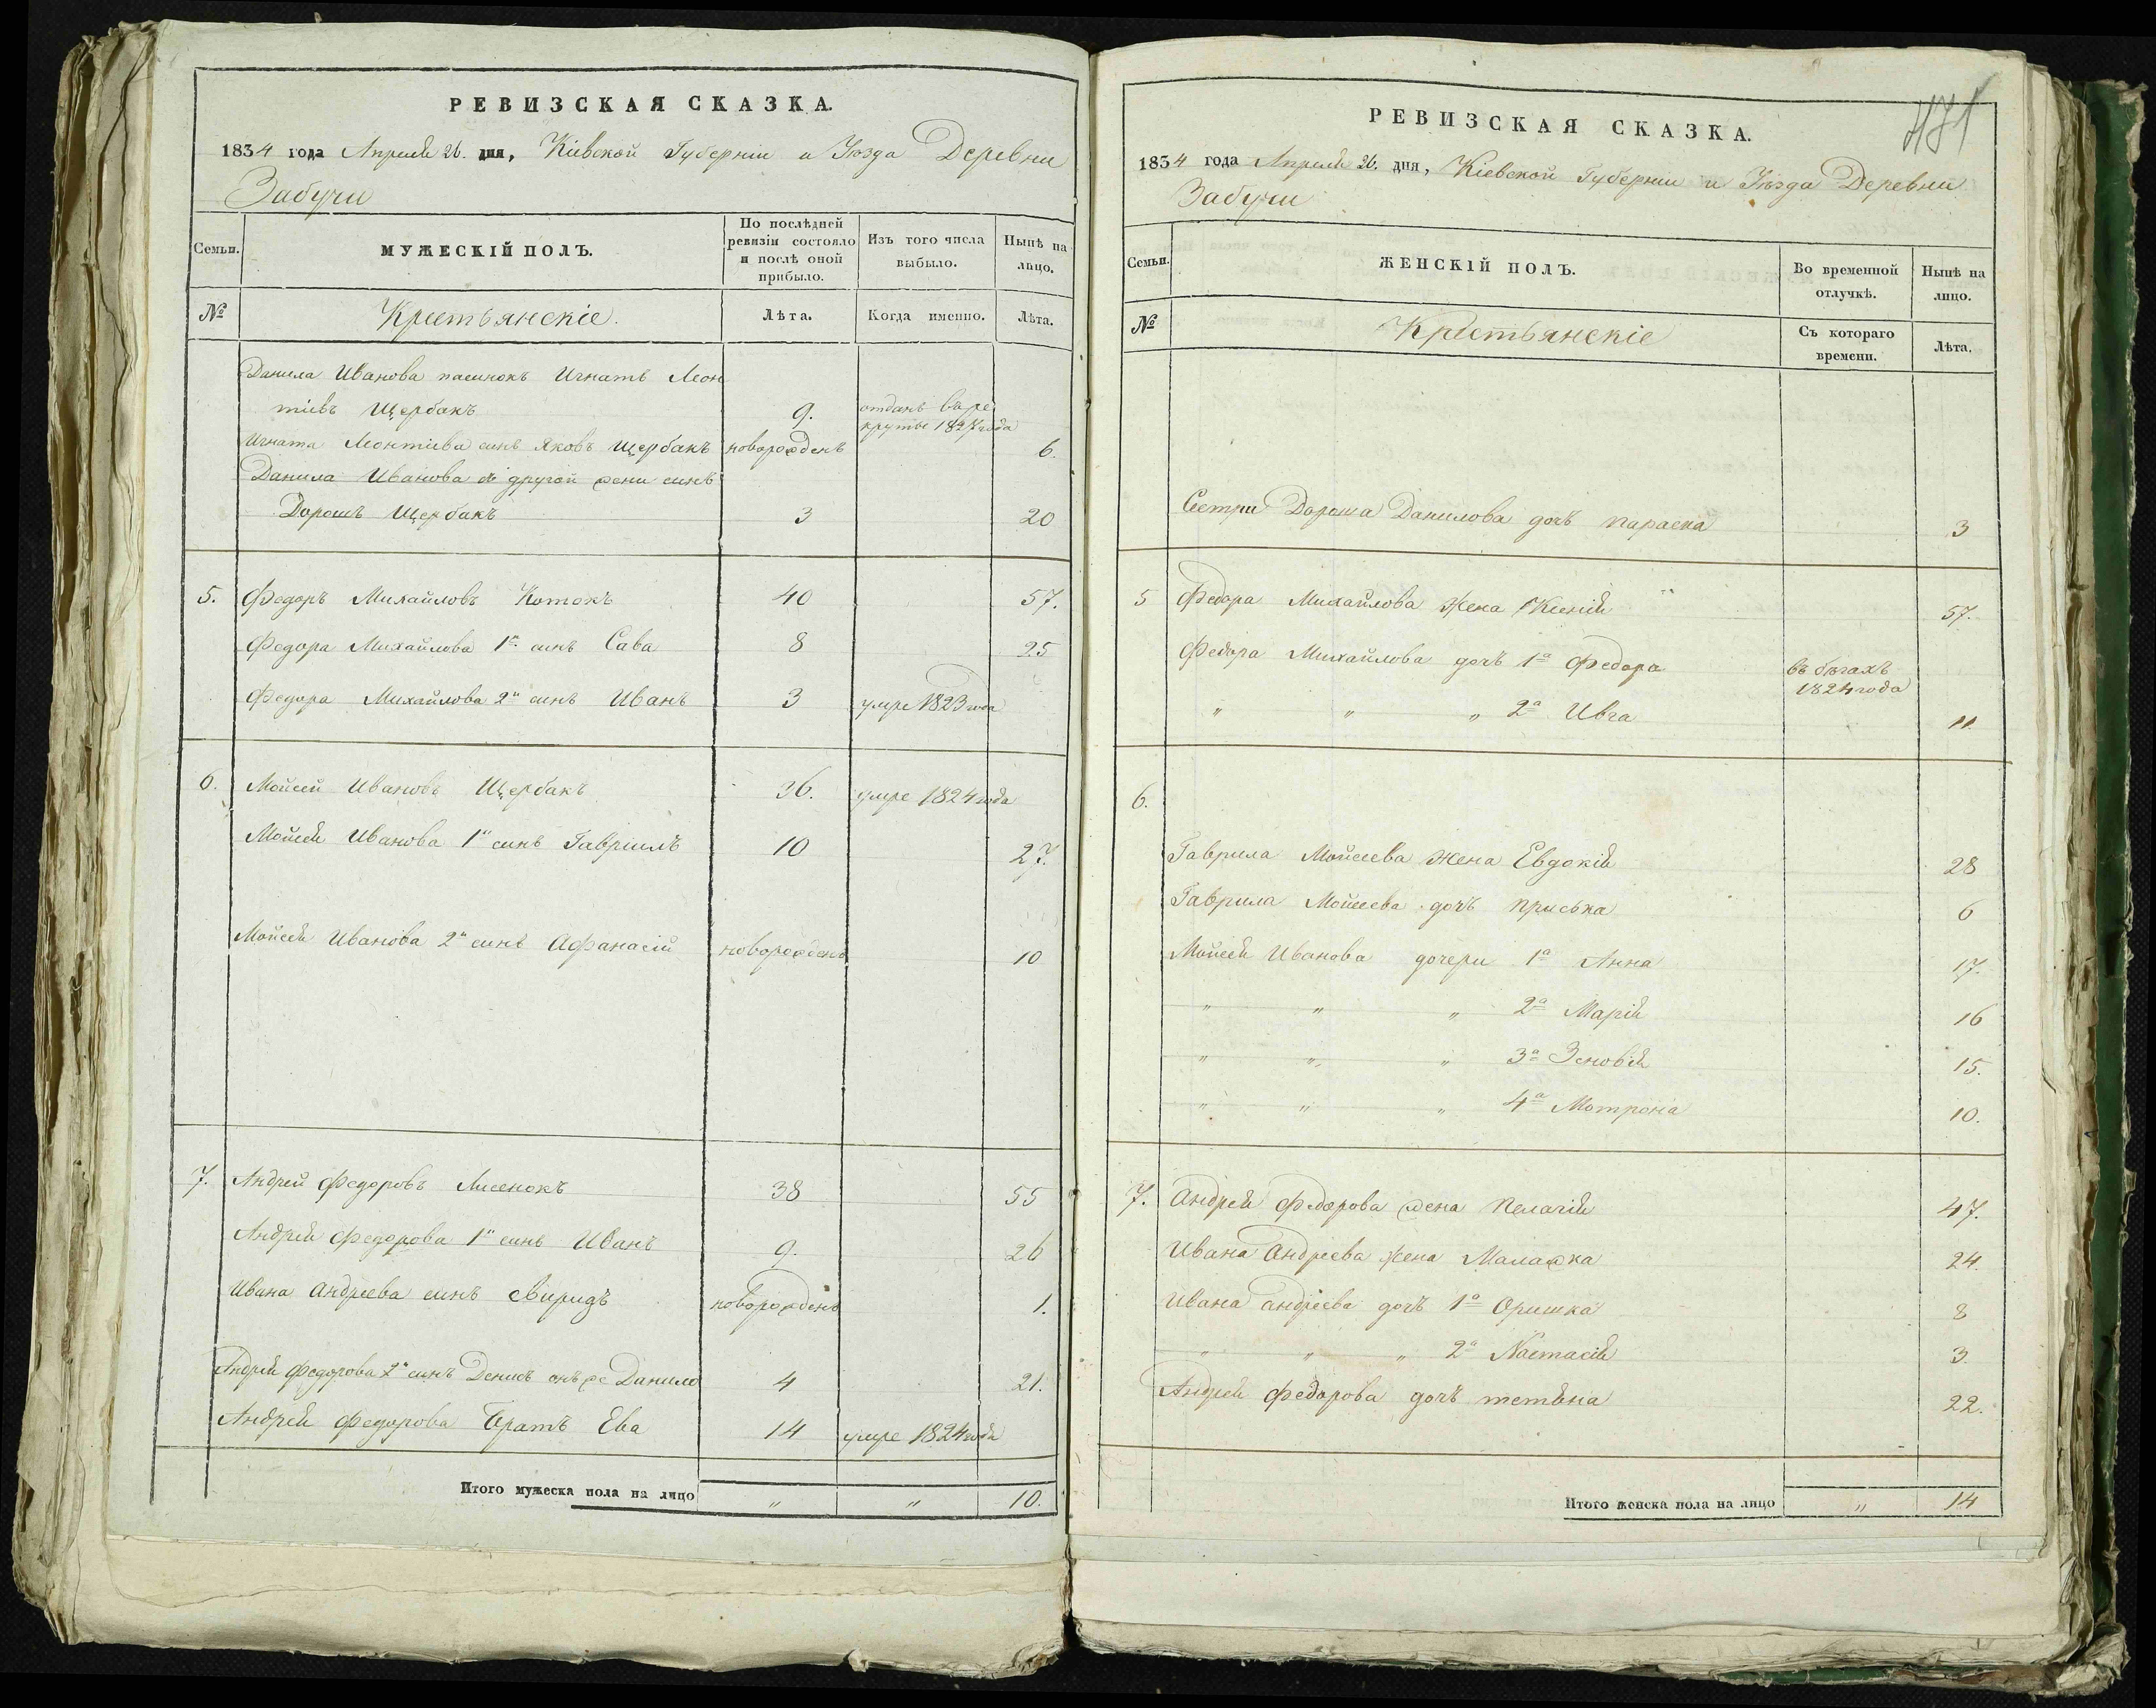 РЕВИЗСКАЯ СКАЗКА.
1834 года Апреля 26. дня, Кіевской Губерніи и Уѣзда Деревни
Забучи
Семьи.
МУЖЕСКІЙ ПОЛЪ.
По послѣдней
ревизіи состояло
и послѣ оной
прибыло.
Изъ того числа
выбыло.
Нынѣ на
лицо.
№
Крестьянскіе.
Лѣта.
Когда именно.
Лѣта.
Данила Иванова пасинокъ Игнатъ Леон
тіевъ Щербакъ 9. отданъ въ ре
круты 1827 года
Игната Леонтіева синъ Яковъ Щербакъ новорожденъ 6.
Данила Иванова другой жени синъ
Дорошъ Щербакъ 3 20
5. Федоръ Михайловъ Котокъ 40 57.
Федора Михайлова 1й синъ Сава 8 25
Федора Михайлова 2й синъ Иванъ 3 умре 1823 года
6. Мойсей Ивановъ Щербакъ 36. умре 1824 года
Мойсея Иванова 1й синъ Гавріилъ 10 27.
Мойсея Иванова 2й синъ Афанасій новорожденъ 10
7. Андрей Федоровъ Лисенокъ 38 55
Андрея Федорова 1й синъ Иванъ 9. 26
Ивана Андреева синъ Свиридъ новорожденъ 1.
Андрея Федорова 2й синъ Денисъ онъ же Данило 4 21.
Андрея Федорова Братъ Ева 14 умре 1824 года
Итого мужеска пола на лицо " " 10.
471
РЕВИЗСКАЯ СКАЗКА.
1834 года Апреля 26. дня, Кіевской Губерніи и Уѣзда Деревни
Забучи
Семьи.
ЖЕНСКІЙ ПОЛЪ.
Во временной
отлучкѣ.
Нынѣ на
лицо.
№
Крестьянскіе
Съ котораго
времени.
Лѣта.
Сестри Дороша Данилова дочь Параска 3
5 Федора Михайлова жена Ксенія 57.
Федора Михайлова дочь 1а Федора въ бѣгахъ
1824 года
" " " 2а Ивга 11
6.
Гаврила Мойсеева жена Евдокія 28
Гаврила Мойсеева дочь Приська 6
Мойсея Иванова дочери 1а Анна 17.
" " " 2а Марія 16
" " " 3а Зеновія 15.
" " " 4а Мотрона 10.
7. Андрея Федорова жена Пелагія 47.
Ивана Андреева жена Малашка 24.
Ивана Андреева дочь 1а Оришка 8
" " " 2а Настасія 3.
Андрея Федорова дочь Тетяна 22.
Итого женска пола на лицо " 14